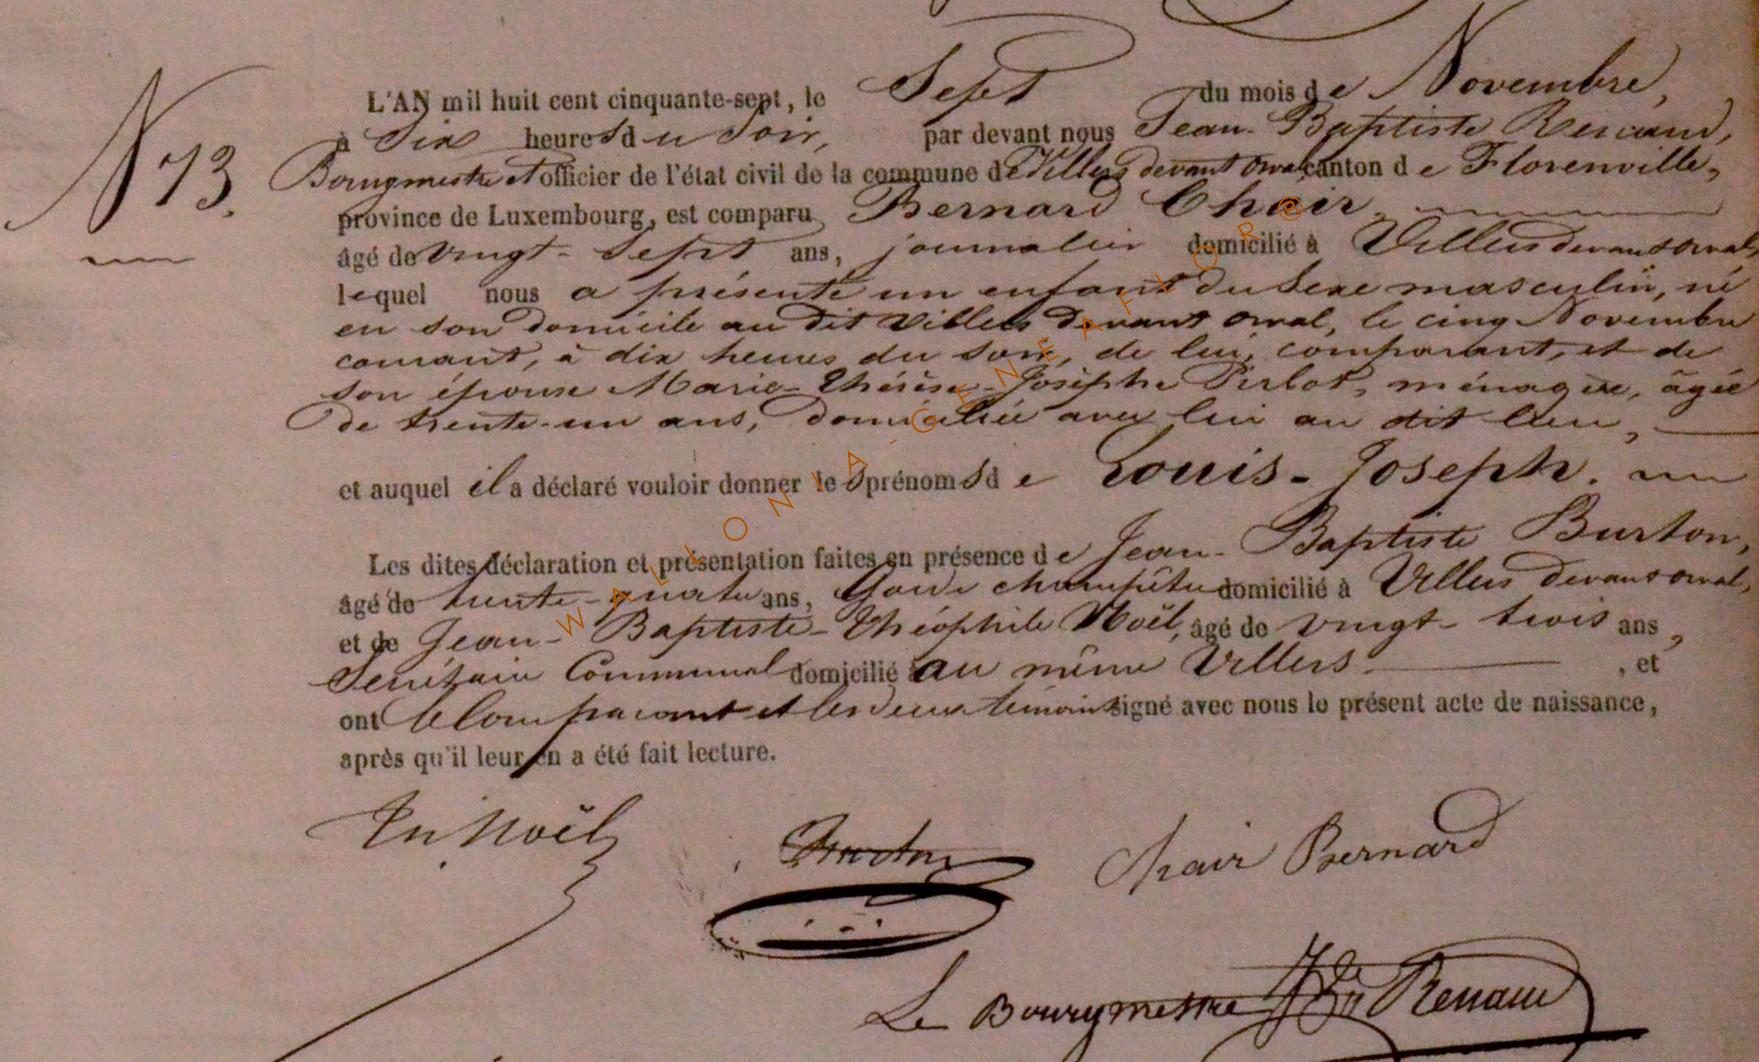 N 73.
L'AN mil huit cent cinquante-sept, le Sept du mois de Novembre,
à Six heures du Soir, par devant nous Jean-Baptiste Renaud,
Bourgmestre et officier de l'état civil de la commune de Villers devant Orval canton de Florenville,
province de Luxembourg, est comparu Bernard Chair,
âgé de vingt-sept ans, journalier domicilié à Villers devant orval,
lequel nous a présenté un enfant du Sexe masculin, né
en son domicile au dit Villers devant orval, le cinq Novembre
courant, à dix heures du soir, de lui, comparant, et de
son épouse Marie-Thérèse-Josèphe Pirlot, ménagère, âgée
de trente-un ans, domiciliée avec lui au dit lieu,
et auquel il a déclaré vouloir donner les prénoms de Louis-Joseph.
Les dites déclaration et présentation faites en présence de Jean-Baptiste Burton,
âgé de trente-quatre ans, Garde champêtre domicilié à Villers devant orval,
et de Jean-Baptiste-Théophile Noël, âgé de vingt-trois ans,
Secrétaire Communal domicilié au même Villers, et
ont le Comparant et les deux témoins signé avec nous le présent acte de naissance,
après qu'il leur en a été fait lecture.
Noël Burton Chair Bernard
Le Bourgmestre Renaud
WALLONIA-GENEAFLOR@